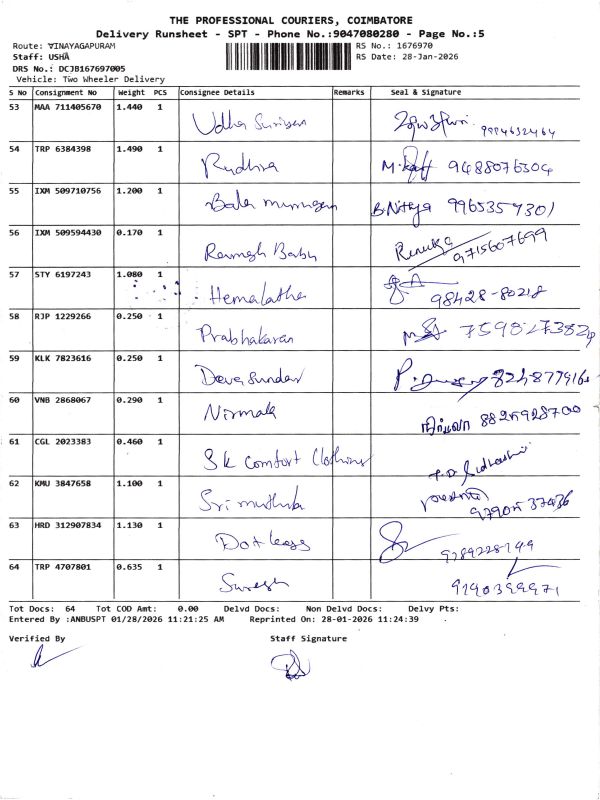 THE PROFESSIONAL COURIERS, COIMBATORE
Delivery Runsheet - SPT - Phone No.:9047080280 - Page No.:5
Route: VINAYAGAPURAM RS No.: 1676970
Staff: USHA RS Date: 28-Jan-2026
DRS No.: DCJB167697005
Vehicle: Two Wheeler Delivery
S No Consignment No Weight PCS Consignee Details Remarks Seal & Signature
53 MAA 711405670 1.440 1
Udha Suriyan
54 TRP 6384398 1.490 1
Rudhra 9488076304
55 IXM 509710756 1.200 1
Bala murugan B.Nitya 9965357301
56 IXM 509594430 0.170 1
Ramesh Babu Renuka 9715607699
57 STY 6197243 1.080 1
Hemalatha 98428-80218
58 RJP 1229266 0.250 1
Prabhakaran
59 KLK 7823616 0.250 1
Deva Sundar
60 VNB 2868067 0.290 1
Nirmala நிர்மலா
61 CGL 2023383 0.460 1
Sk Comfort Clothing
62 KMU 3847658 1.100 1
Sri muthu
63 HRD 312907834 1.130 1
Dot legs
64 TRP 4707801 0.635 1
Suresh
Tot Docs: 64 Tot COD Amt: 0.00 Delvd Docs: Non Delvd Docs: Delvy Pts:
Entered By :ANBUSPT 01/28/2026 11:21:25 AM Reprinted On: 28-01-2026 11:24:39
Verified By Staff Signature